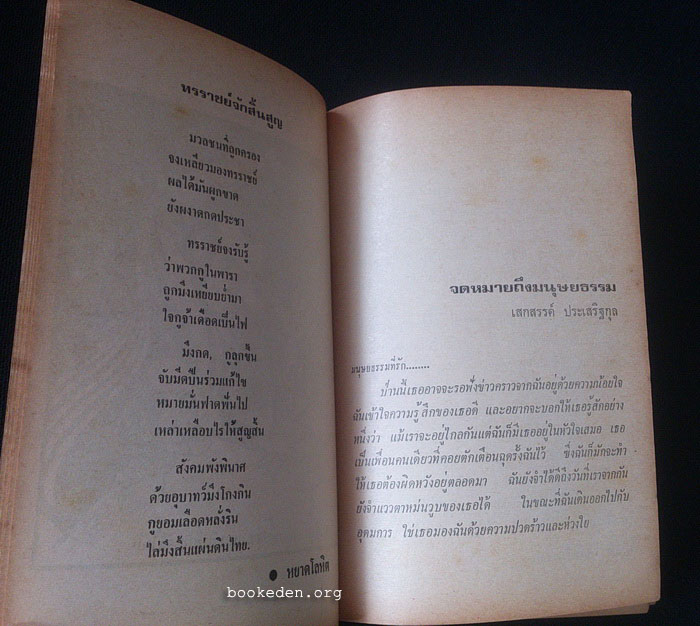 ทรราชย์จักสิ้นสูญ
มวลชนที่ถูกครอง
จงเหลียวมองทรราชย์
ผลได้มันผูกขาด
ยังผงาดกดประชา
ทรราชย์จงรับรู้
ว่าพวกกูในพารา
ถูกมึงเหยียบย่ำมา
ใจกูจ้าเดือดเป็นไฟ
มึงกด, กูลุกขึ้น
จับมีดปืนร่วมแก้ไข
หมายมั่นฟาดฟันไป
เหล่าเหลือบไรให้สูญสิ้น
สังคมพังพินาศ
ด้วยอุบาทว์มึงโกงกิน
กูยอมเลือดหลั่งริน
ไล่มึงสิ้นแผ่นดินไทย.
● หยาดโลหิต
จดหมายถึงมนุษยธรรม
เสกสรรค์ ประเสริฐกุล
มนุษยธรรมที่รัก........
ป่านนี้เธออาจจะรอฟังข่าวคราวจากฉันอยู่ด้วยความน้อยใจ
ฉันเข้าใจความรู้สึกของเธอดี และอยากจะบอกให้เธอรู้สักอย่าง
หนึ่งว่า แม้เราจะอยู่ไกลกันแต่ฉันก็มีเธออยู่ในหัวใจเสมอ เธอ
เป็นเพื่อนคนเดียวที่คอยตักเตือนฉุดรั้งฉันไว้ ซึ่งฉันก็มักจะทำ
ให้เธอต้องผิดหวังอยู่ตลอดมา ฉันยังจำได้ดีถึงวันที่เราจากกัน
ยังจำแววตาหม่นวูบของเธอได้ ในขณะที่ฉันเดินออกไปกับ
อุดมการ ใช่เธอมองฉันด้วยความปวดร้าวและห่วงใย
bookeden.org